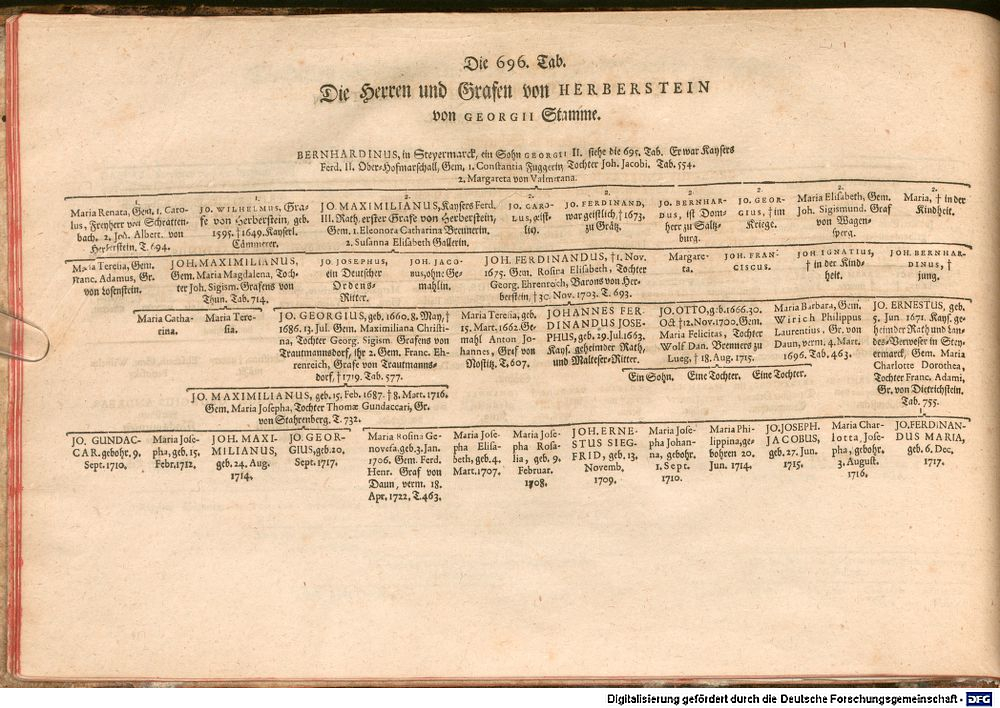 Die 696. Tab.
Die Herren und Grafen von HERBERSTEIN
von GEORGII Stamme.
BERNHARDINUS, in Steyermarck, ein Sohn GEORGII II. siehe die 695. Tab. Er war Kaysers
Ferd. II. Ober-Hofmarschall, Gem. 1. Constantia Fuggerin Tochter Joh. Jacobi. Tab. 554.
2. Margareta von Valmarana.
1.
Maria Renata, Gem. 1. Caro-
lus, Freyherr von Schratten-
bach. 2. Joh. Albert. von
Herberstein, T. 694.
1.
JO. WILHELMUS, Gra-
fe von Herberstein, geb.
1595. † 1649. Kayserl.
Cämmerer.
2.
JO. MAXIMILIANUS, Kaysers Ferd.
III. Rath, erster Grafe von Herberstein,
Gem. 1. Eleonora Catharina Brennerin.
2. Susanna Elisabeth Gallerin.
2.
JO. CARO-
LUS, geist-
lich.
2.
JO. FERDINAND,
war geistlich, † 1673.
zu Grätz.
2.
JO. BERNHAR-
DUS, ist Dom-
herr zu Saltz-
burg.
2.
JO. GEOR-
GIUS, † im
Kriege.
2.
Maria Elisabeth, Gem.
Joh. Sigismund. Graf
von Wagen-
sperg.
2.
Maria, † in der
Kindheit.
Maria Teresia, Gem.
Franc. Adamus, Gr.
von Losenstein.
JOH. MAXIMILIANUS,
Gem. Maria Magdalena, Toch-
ter Joh. Sigism. Grafens von
Thun. Tab. 714.
JO. JOSEPHUS,
ein Deutscher
Ordens-
Ritter.
JOH. JACO-
BUS, ohne Ge-
mahlin.
JOH. FERDINANDUS, † 1. Nov.
1675. Gem. Rosina Elisabeth, Tochter
Georg. Ehrenreich, Barons von Her-
berstein, † 30. Nov. 1703. T. 693.
Margare-
ta.
JOH. FRAN-
CISCUS.
JOH IGNATIUS,
† in der Kind-
heit.
JOH. BERNHAR-
DINUS, †
jung.
Maria Catha-
rina.
Maria Tere-
sia.
JO. GEORGIUS, geb. 1660. 8. May, †
1686. 13. Jul. Gem. Maximiliana Christi-
na, Tochter Georg. Sigism. Grafens von
Trautmannsdorf, ihr 2. Gem. Franc. Eh-
renreich, Grafe von Trautmanns-
dorf, † 1719. Tab. 577.
Maria Teresia, geb.
15. Mart. 1662. Ge-
mahl Anton Jo-
hannes, Graf von
Nostitz. T. 607.
JOHANNES FER-
DINANDUS JOSE-
PHUS, geb. 29. Jul. 1663.
Kays. geheimder Rath,
und Malteser-Ritter.
JO. OTTO, geb. 1666. 30.
Oct † 12. Nov. 1700. Gem.
Maria Felicitas, Tochter
Wolf Dan. Brenners zu
Lueg, † 18. Aug. 1715.
Maria Barbara, Gem.
Wirich Philippus
Laurentius, Gr. von
Daun, verm. 4. Mart.
1696. Tab. 463.
JO. ERNESTUS, geb.
5. Jun. 1671. Kays. ge-
heimder Rath und Lan-
des-Verweser in Stey-
ermarck, Gem. Maria
Charlotte Dorothea,
Tochter Franc. Adami,
Gr. von Dietrichstein.
Tab. 755.
Ein Sohn. Eine Tochter. Eine Tochter.
JO. MAXIMILIANUS, geb. 15. Feb. 1687. † 8. Mart. 1716.
Gem. Maria Josepha, Tochter Thomæ Gundaccari, Gr.
von Stahrenberg. T. 732.
JO. GUNDAC-
CAR. gebohr. 9.
Sept. 1710.
Maria Jose-
pha, geb. 15.
Febr. 1712.
JOH. MAXI-
MILIANUS,
geb. 24. Aug.
1714.
JO. GEOR-
GIUS, geb. 20.
Sept. 1717.
Maria Rosina Ge-
novefa. geb. 3. Jan.
1706. Gem. Ferd.
Henr. Graf von
Daun, verm. 18.
Apr. 1722. T. 463.
Maria Jose-
pha Elisa-
beth, geb. 4.
Mart. 1707.
Maria Jose-
pha Rosa-
lia, geb. 9.
Februar.
1708.
JOH. ERNE-
STUS SIEG-
FRID, geb. 13.
Novemb.
1709.
Maria Jose-
pha Johan-
na, gebohr.
1. Sept.
1710.
Maria Phi-
lippina, ge-
bohren 20.
Jun. 1714.
JO. JOSEPH.
JACOBUS,
geb. 27. Jun.
1715.
Maria Char-
lotta, Jose-
pha, gebohr.
3. August.
1716.
JO. FERDINAN-
DUS MARIA,
geb. 6. Dec.
1717.
Digitalisierung gefördert durch die Deutsche Forschungsgemeinschaft - DFG